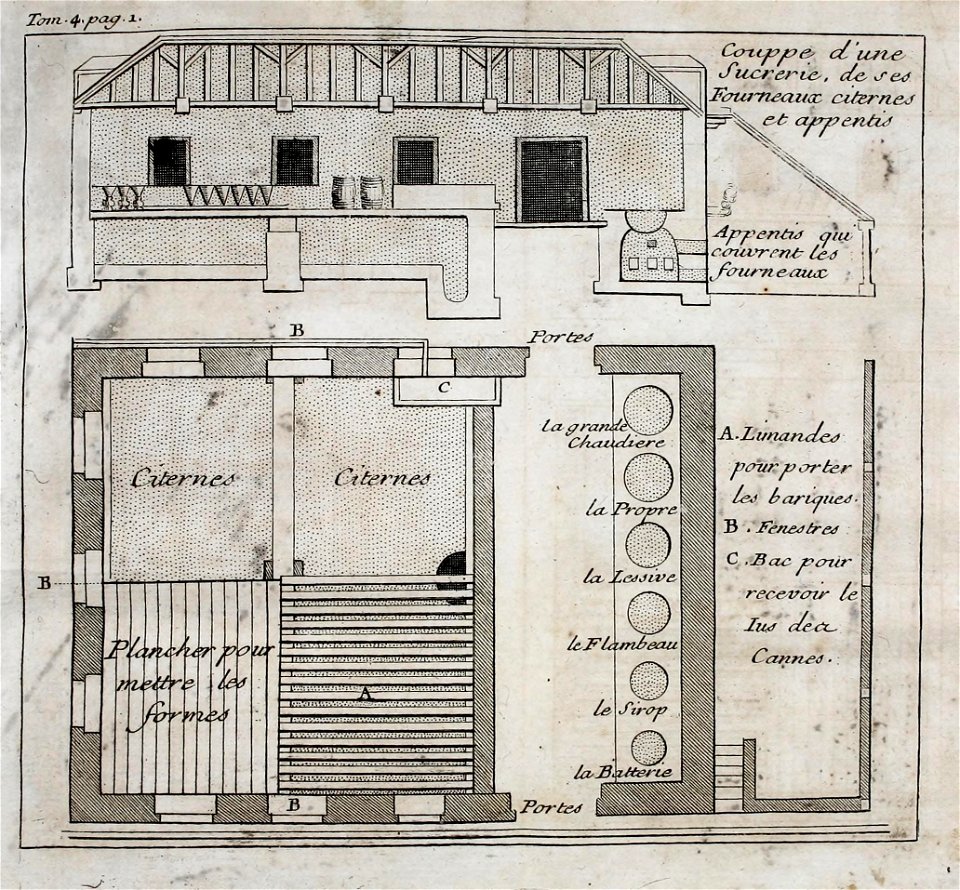 Tom. 4. pag. 1.
Couppe d'une
Sucrerie, de ses
Fourneaux citernes
et appentis
Appentis qui
couvrent les
fourneaux
B
Portes
C
la grande
Chaudiere
Citernes
Citernes
la Propre
la Lessive
B
le Flambeau
Plancher pour
mettre les
formes
A
le Sirop
la Batterie
B
Portes
A. Limandes
pour porter
les bariques.
B. Fenestres
C. Bac pour
recevoir le
Ius des
Cannes.